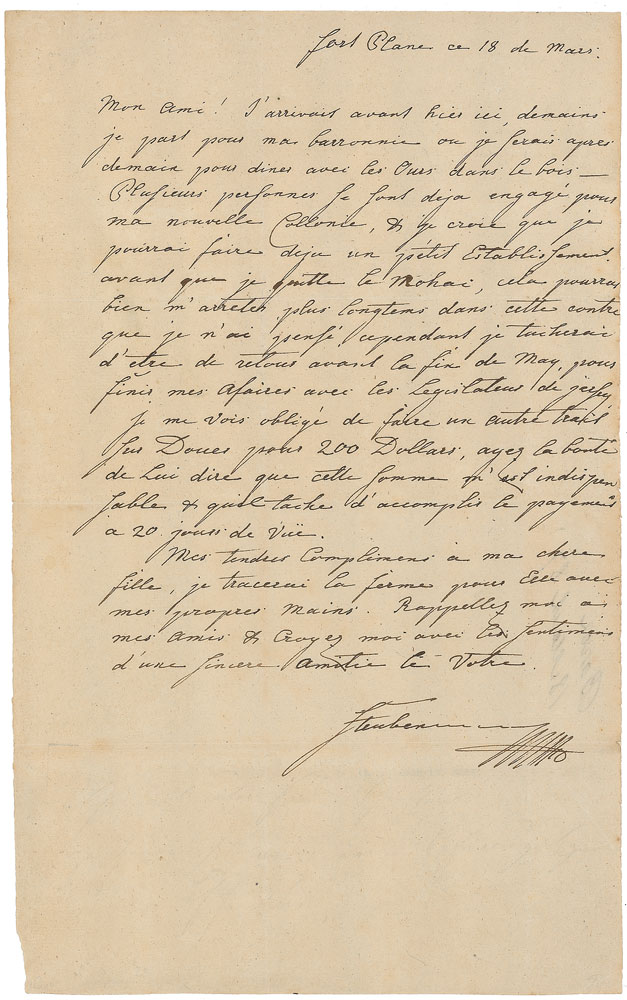 fort Plane ce 18 de Mars.
Mon Ami! J'arrivait avant hier ici, demains
je part pour ma barronnie ou je serais apres
demain pour diner avec les Ours dans le bois —
Plusieurs personnes se sont deja engagé pour
ma nouvelle Collonie, & je croie que je
pourrai faire deja un pétit Etablissement
avant que je quitte le Mohac, cela pourras
bien m'arréter plus longtems dans cette contre
que je n'ai pensé, cependant je tacherai
d'être de retour avant la fin de May, pour
finir mes afaires avec les Legislateur de jersey
je me vois obligé de faire un autre trait
sur Doues pour 200 Dollars, ayez la bonté
de Lui dire que cette somme m'est indispen
sable & qu'il tache d'accomplir le payement
a 20 jours de Vüe.
Mes tendres Complimens a ma chere
fille, je tracerai la ferme pour Elle avec
mes propres Mains. Rappellez moi a
mes Amis & Croyez moi avec les Sentimens
d'une sincere Amitie le Votre.
Steuben